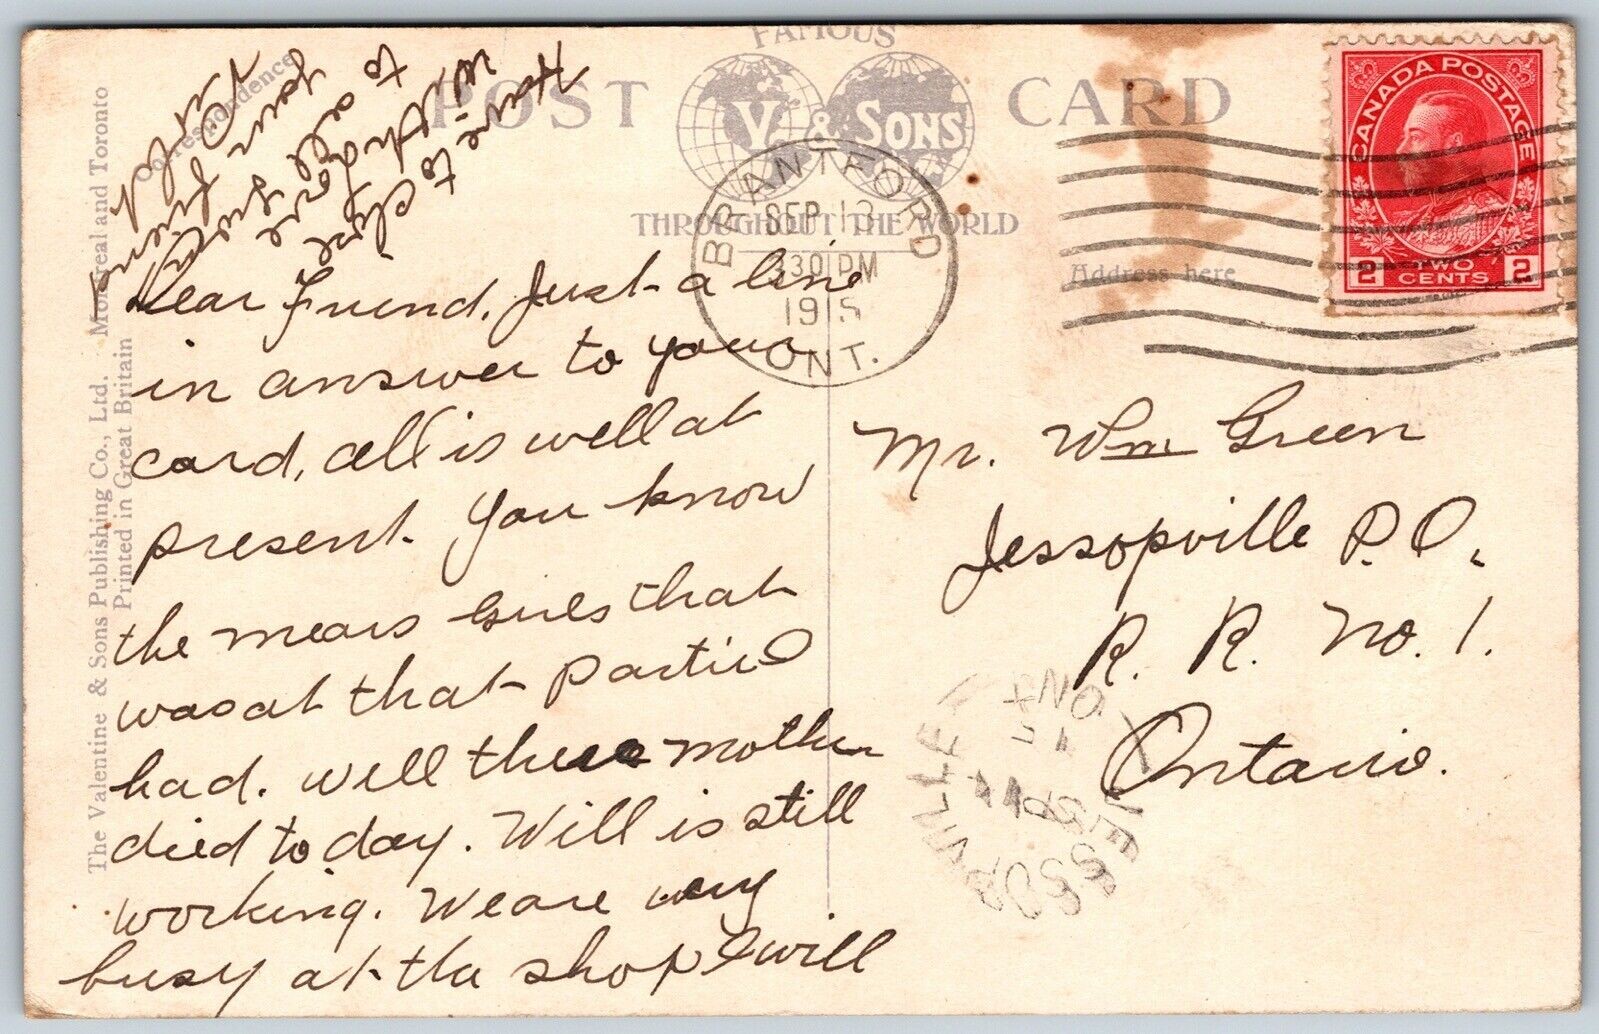 FAMOUS
POST CARD
V. & SONS
THROUGHOUT THE WORLD
BRANTFORD
SEP 13
30 PM
1915
ONT.
CANADA POSTAGE
2 TWO CENTS 2
Correspondence
Address here
The Valentine & Sons Publishing Co., Ltd. Montreal and Toronto
Printed in Great Britain
Dear Friend, Just a line
in answer to your
card, all is well at
present. You know
the mears Gires that
was at that partie
had. Well there mother
died today. Will is still
working. We are very
busy at the shop I will
Have to close
with love
to all
your friend
Mr. Wm Green
Jessopville P.O.
R. R. No. 1.
Ontario.
JESSOPVILLE
ONT